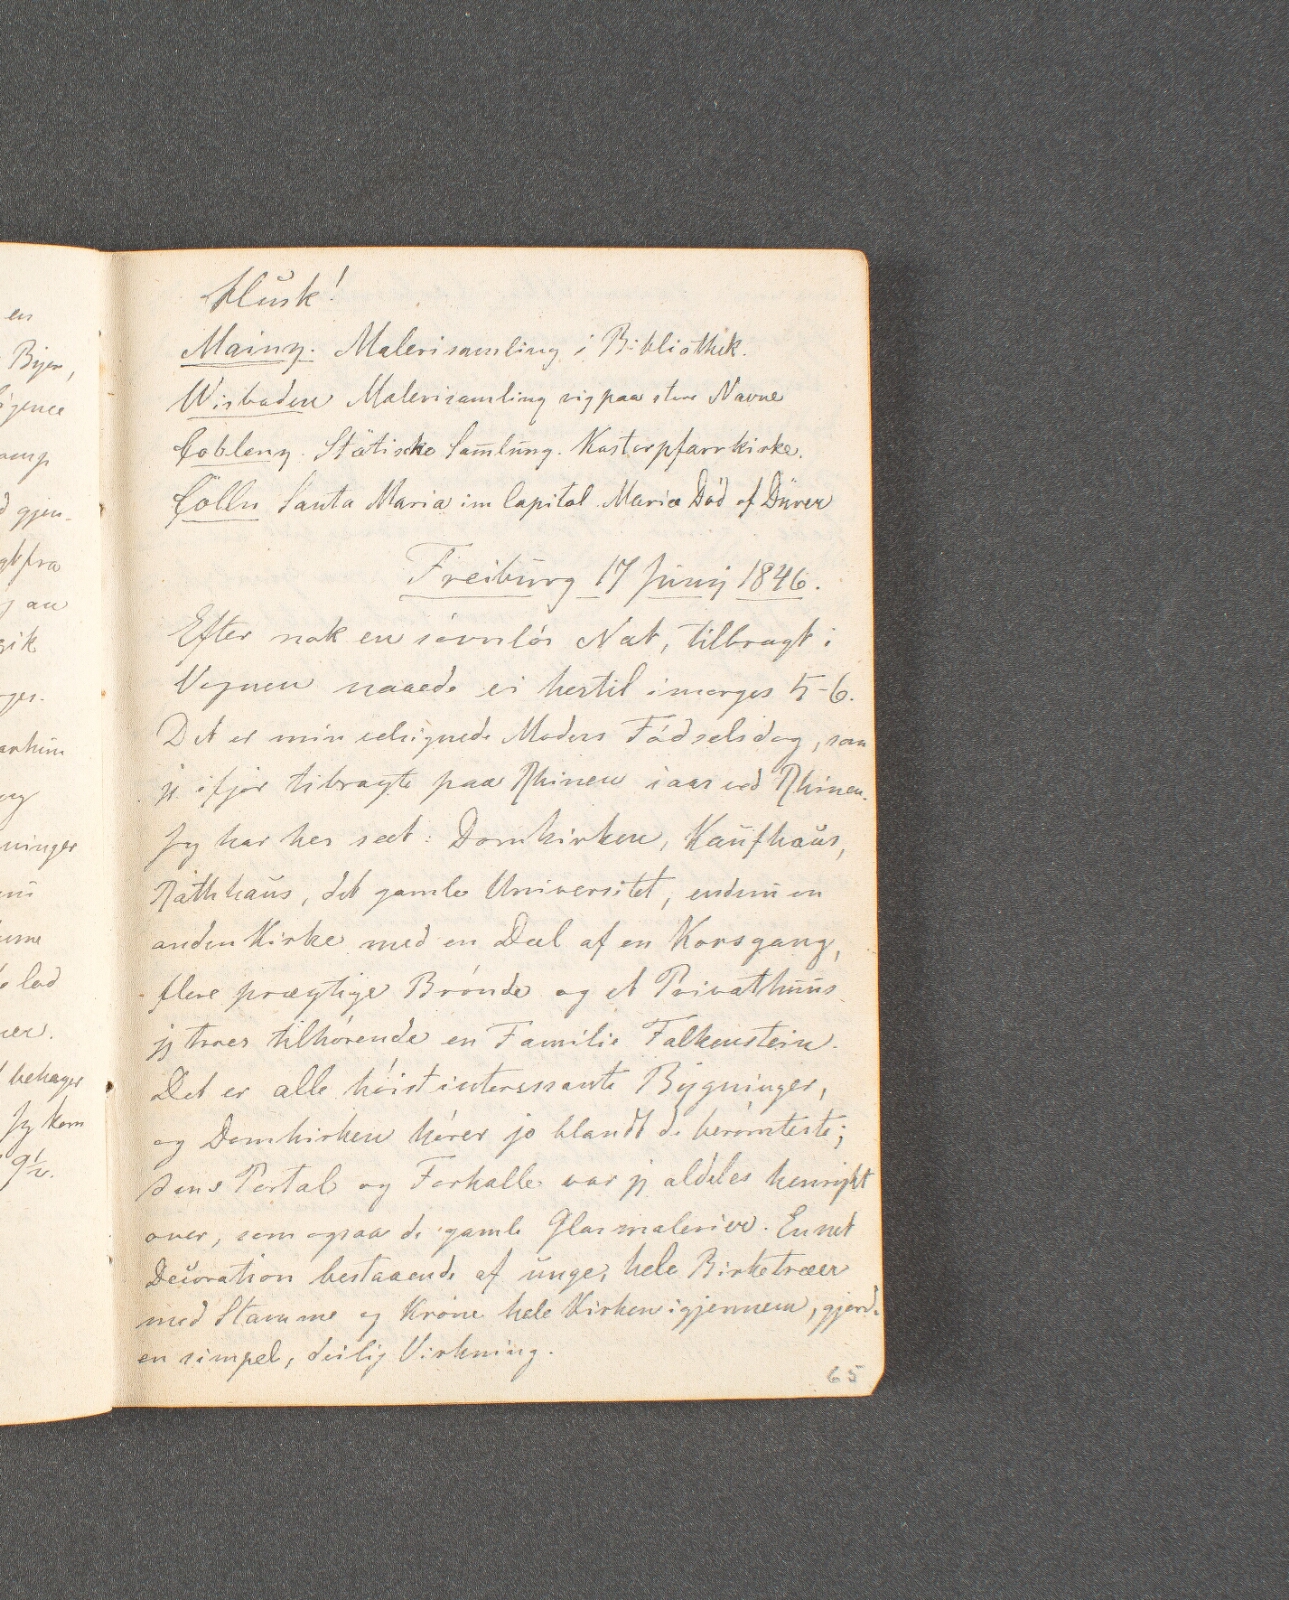 en
Byer,
gjen-
fra
au
sik
ninger
lod
behager
Jeg kom
9½.
Husk!
Mainz. Malerisamling i Bibliothek.
Wisbaden Malerisamling rig paa store Navne
Coblenz. Stätiske Samlung. Kastorpfarrkirke.
Cölln Santa Maria im Capitol. Mariæ Död af Dürer
Freiburg 17 Junij 1846.
Efter nok en sövnlös Nat, tilbragt i
Vognen naaede vi hertil imorges 5-6.
Det er min velsignede Moders Födselsdag, som
jeg ifjor tibragte paa Rhinen iaar ved Rhinen.
Jeg har her seet: Domkirken, Kaufhaus,
Rathhaus, det gamle Universitet, endnu en
anden Kirke med en Deel af en Korsgang,
flere prægtige Brönde og et Privathuus
jeg troer tilhörende en Familie Falkenstein.
Det er alle höist interessante Bygninger,
og Domkirken hörer jo blandt de berömteste;
dens Portal og Forhalle var jeg aldeles henrykt
over, som ogsaa de gamle Glasmalerier. En net
Decoration bestaaende af unge, hele Birketræer
med Stamme og Krone hele Kirken igjennem, gjorde
en simpel, deilig Virkning.
65